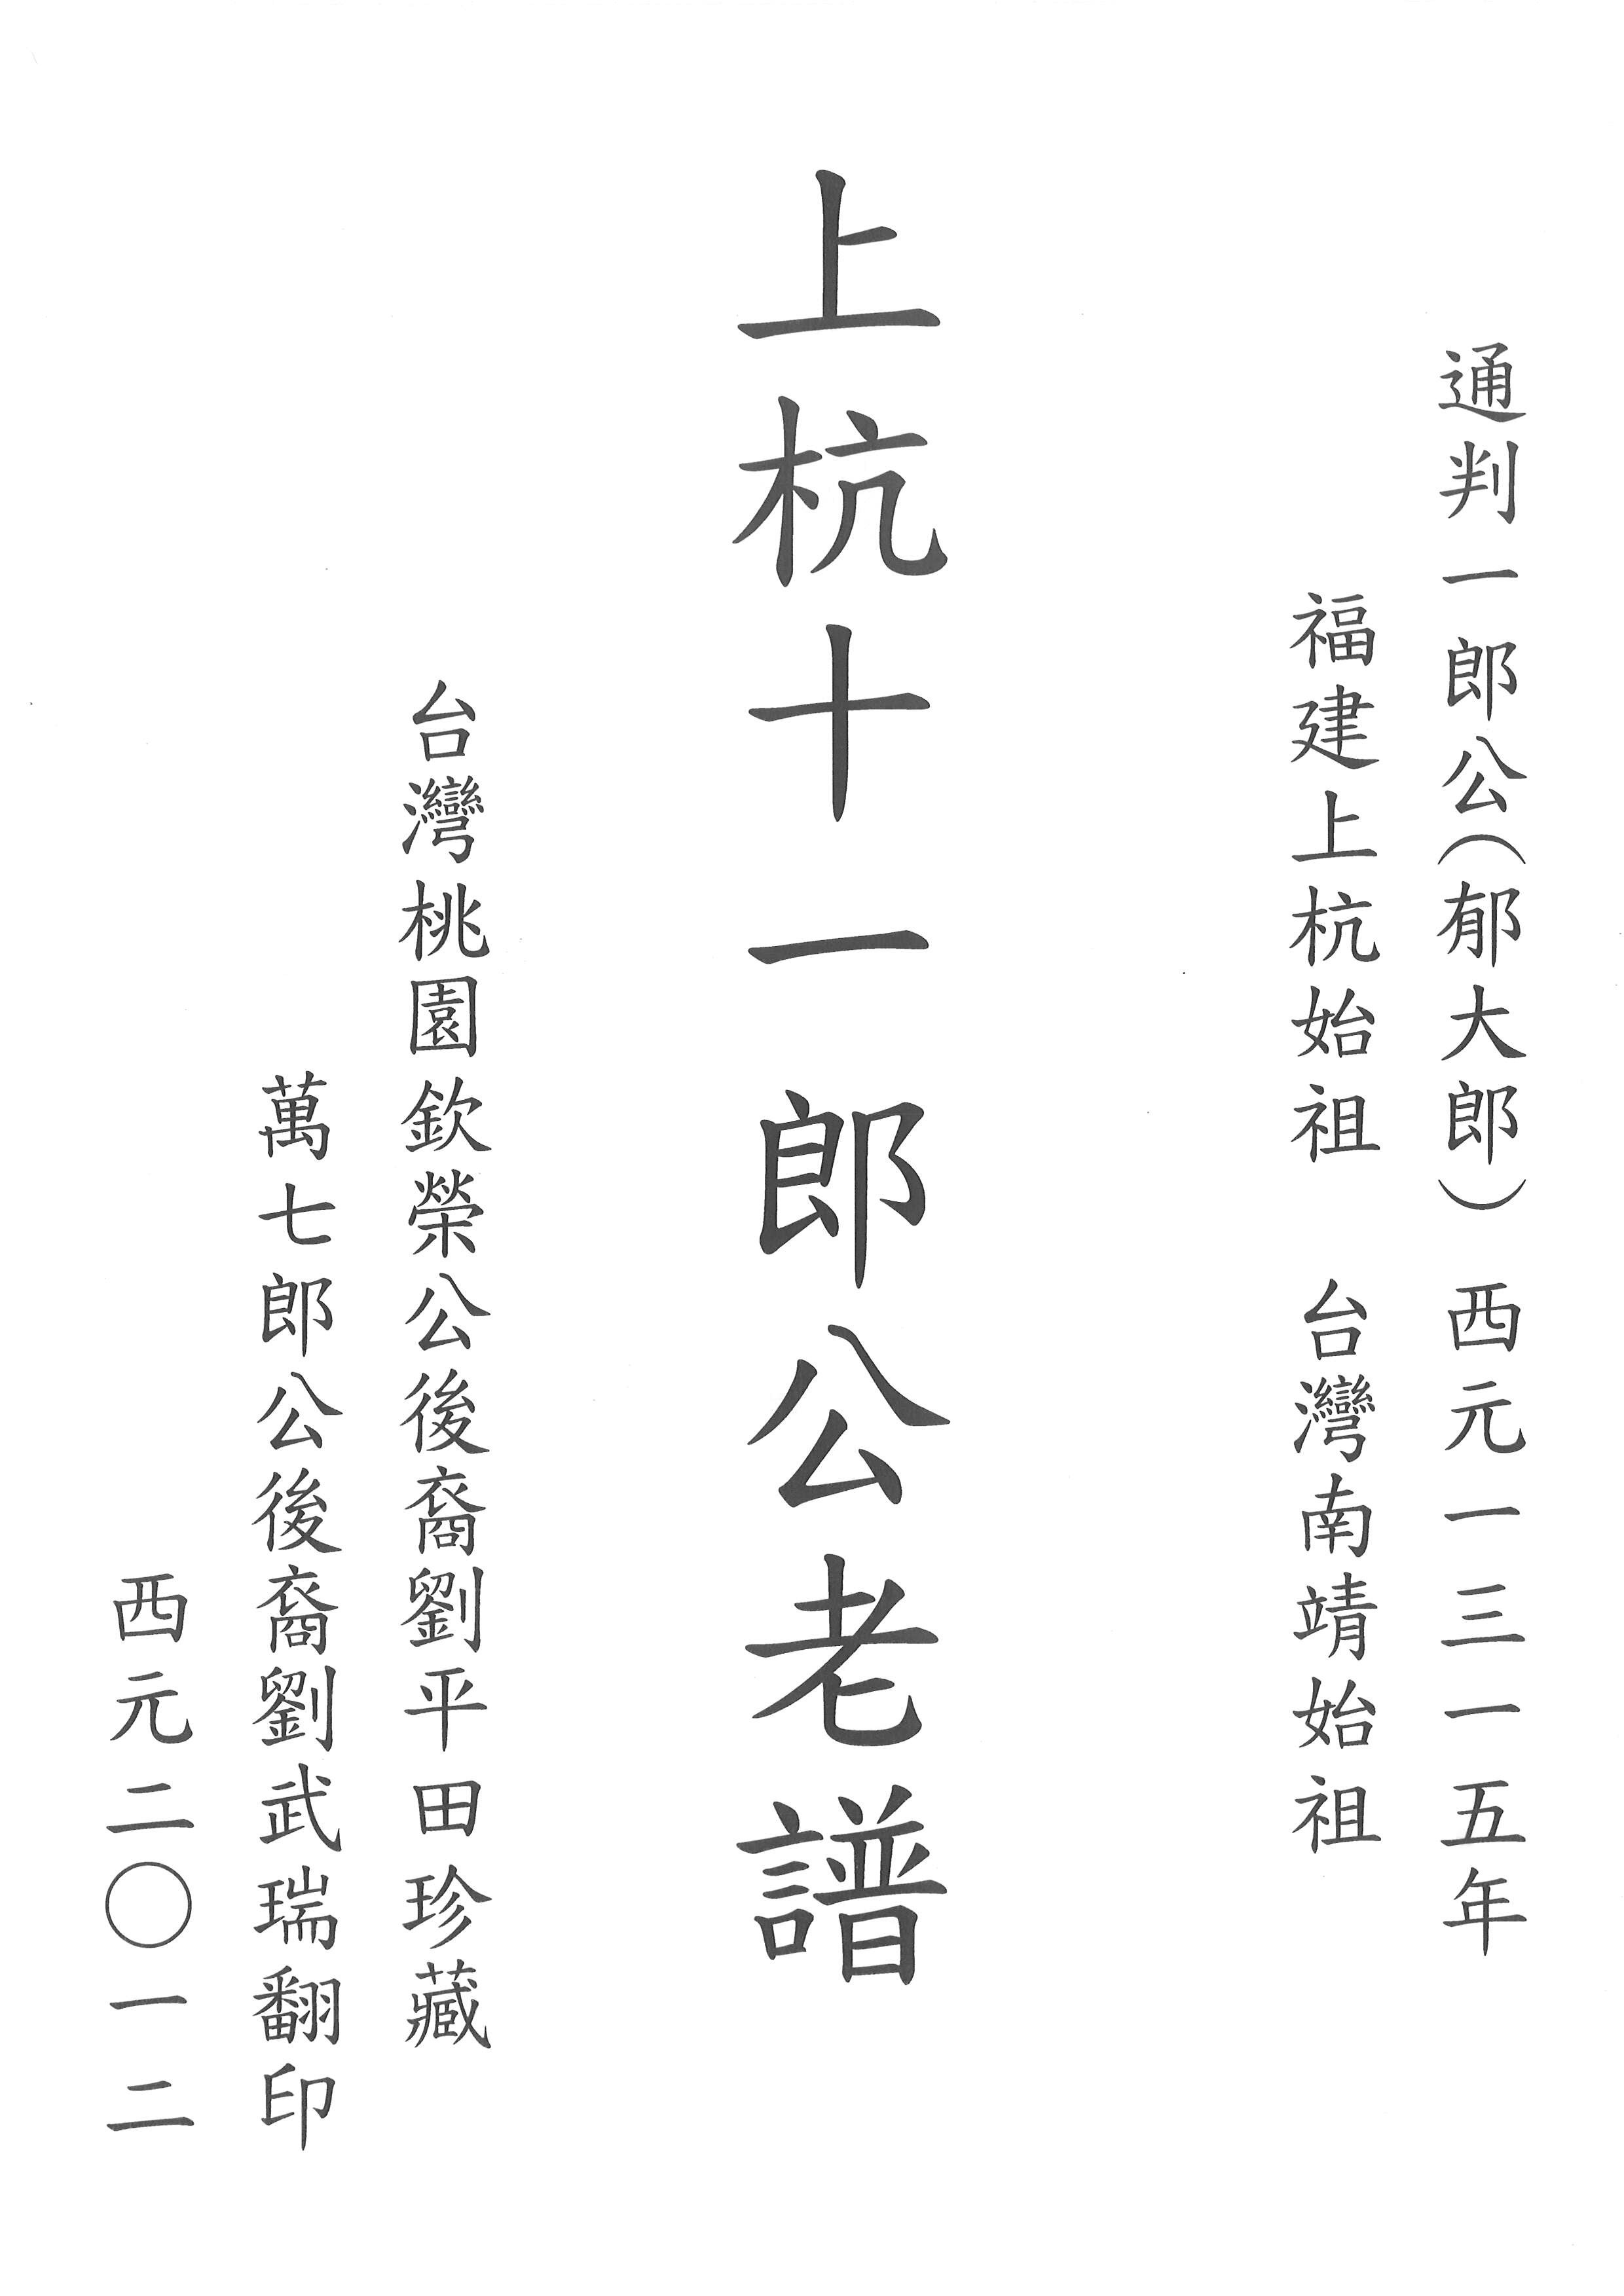 通判一郎公（郁大郎）　西元一三一五年
福建上杭始祖　台灣南靖始祖
上杭十一郎公老譜
台灣桃園欽榮公後裔劉平田珍藏
萬七郎公後裔劉武瑞翻印
西元二〇一二